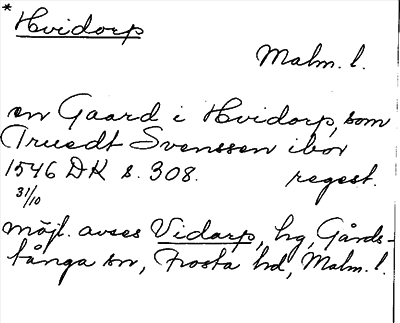 *
Hvidorp
Malm. l.
en Gaard i Hvidorp, som
Truedt Svenssen ibor
1546 DK s. 308. regest.
31/10
möjl. avses Vidarp, hg, Gårds-
tånga sn, Frosta hd, Malm. l.